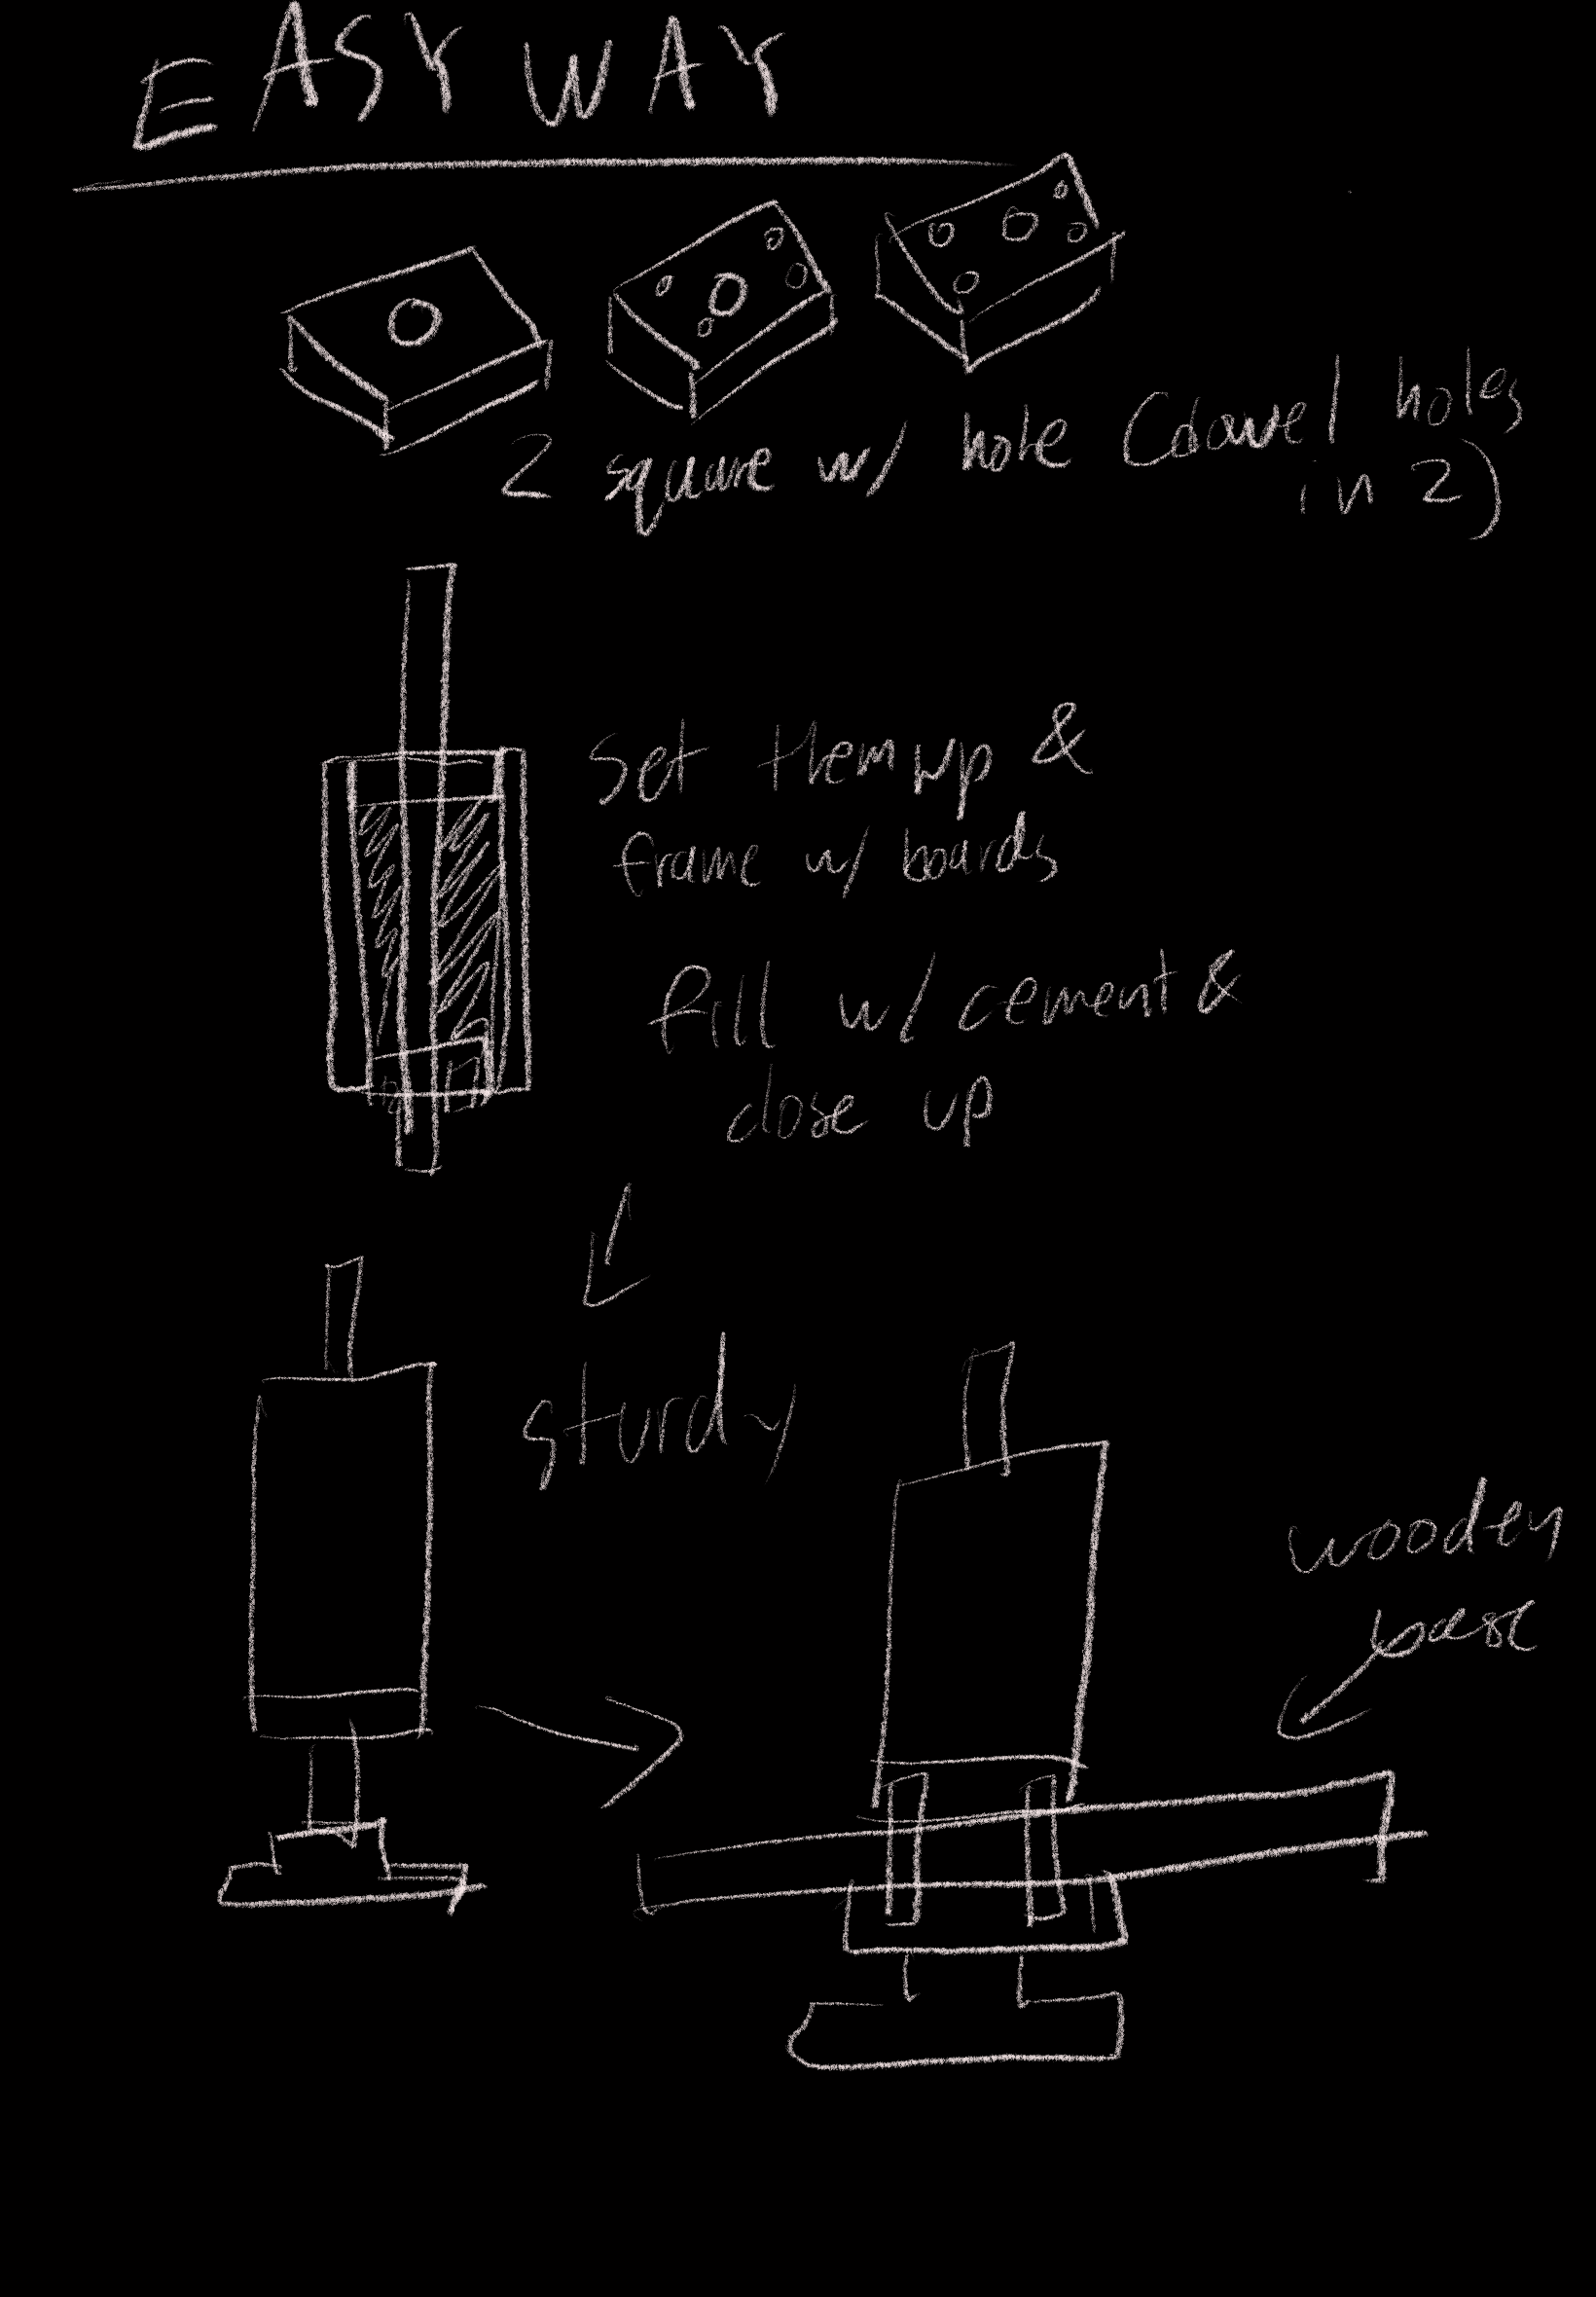 EASY WAY
2 square w/ hole (dowel holes
in 2)
Set them up &
frame w/ boards
fill w/ cement &
close up
sturdy
wooden
base